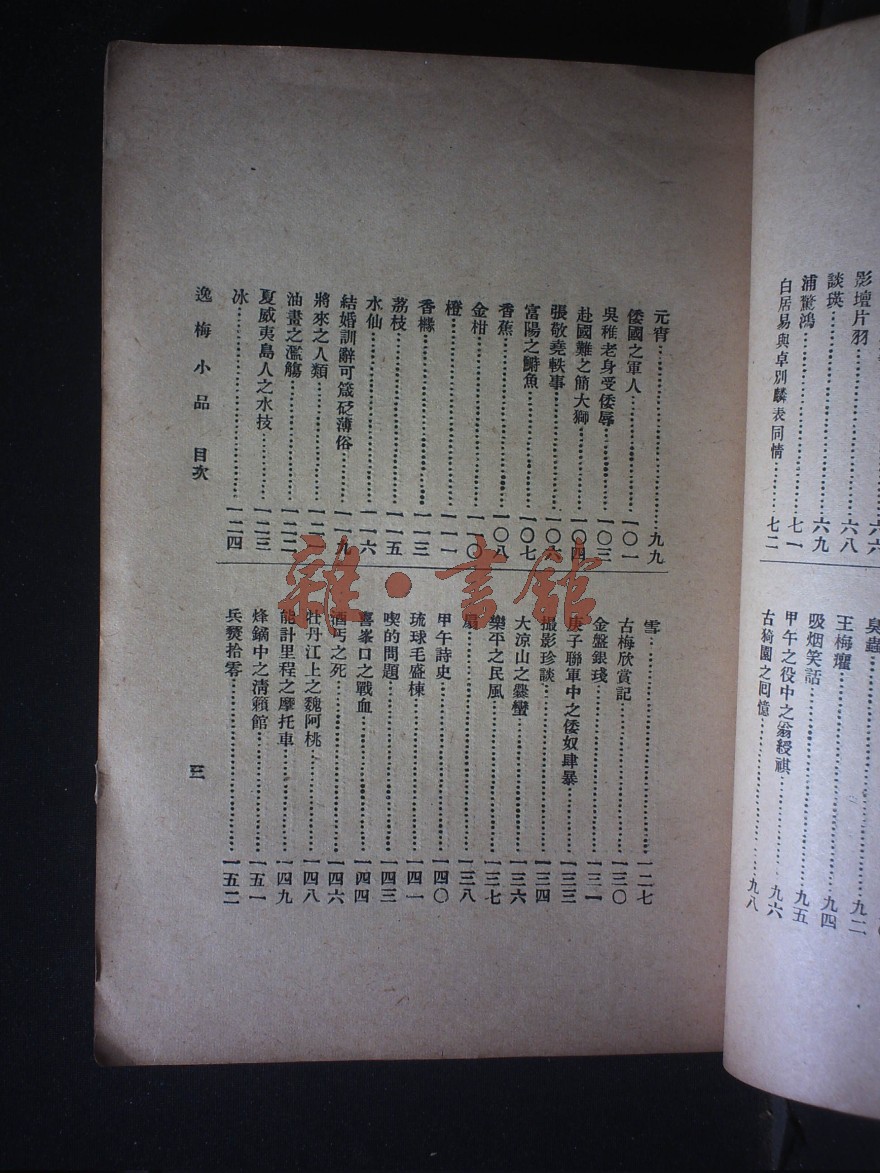 六六
影壇片羽……六八
談瑛……六九
浦驚鴻……七一
白居易與卓別麟表同情……七二
臭蟲……九二
王梅癯……九四
吸烟笑話……九五
甲午之役中之翁綬祺……九六
古猗園之回憶……九八
元宵……九九
倭國之軍人……一〇一
吳稚老身受倭辱……一〇三
赴國難之簡大獅……一〇四
張敬堯軼事……一〇六
富陽之鰣魚……一〇七
香蕉……一〇八
金柑……一一〇
橙……一一一
香櫞……一一三
荔枝……一一五
水仙……一一六
結婚訓辭可箴砭薄俗……一一九
將來之人類……一二一
油畫之濫觴……一二二
夏威夷島人之水技……一二三
冰……一二四
雪……一二七
古梅欣賞記……一三〇
金盤銀琖……一三一
庚子聯軍中之倭奴肆暴……一三三
撮影珍談……一三四
大涼山之爨蠻……一三六
樂平之民風……一三七
扇……一三八
甲午詩史……一四〇
琉球毛盛棟……一四一
喫的問題……一四三
喜峯口之戰血……一四四
酒丐之死……一四六
牡丹江上之魏阿桃……一四八
能計里程之摩托車……一四九
烽鏑中之清籟館……一五一
兵燹拾零……一五二
逸梅小品 目次
三
雜·書館